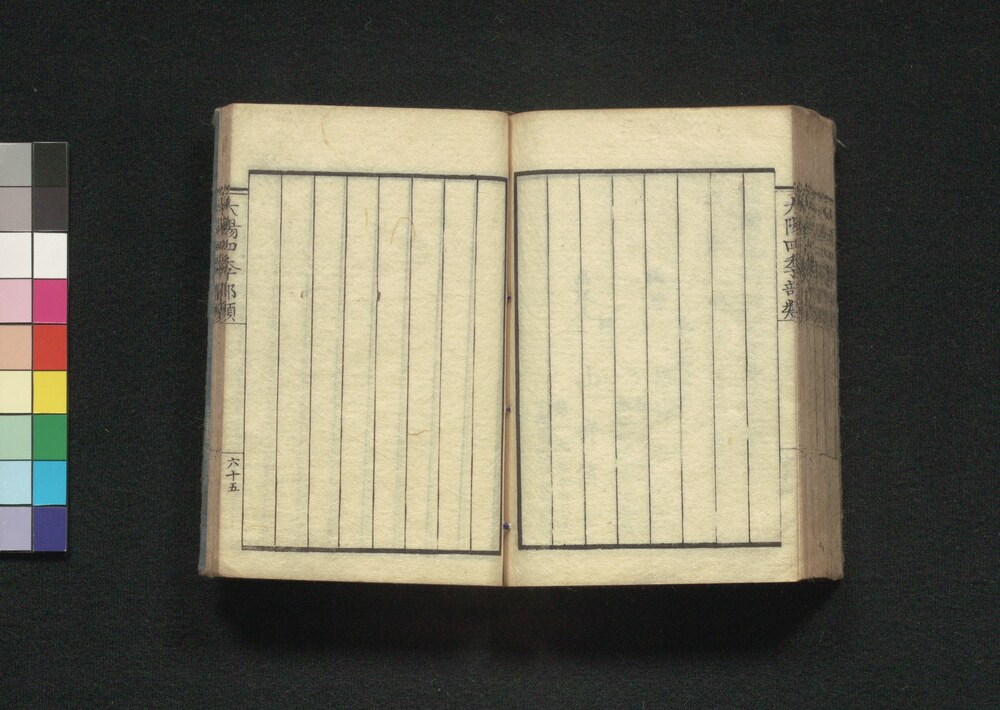 太陽四季部類
太陽四季部類
六十五